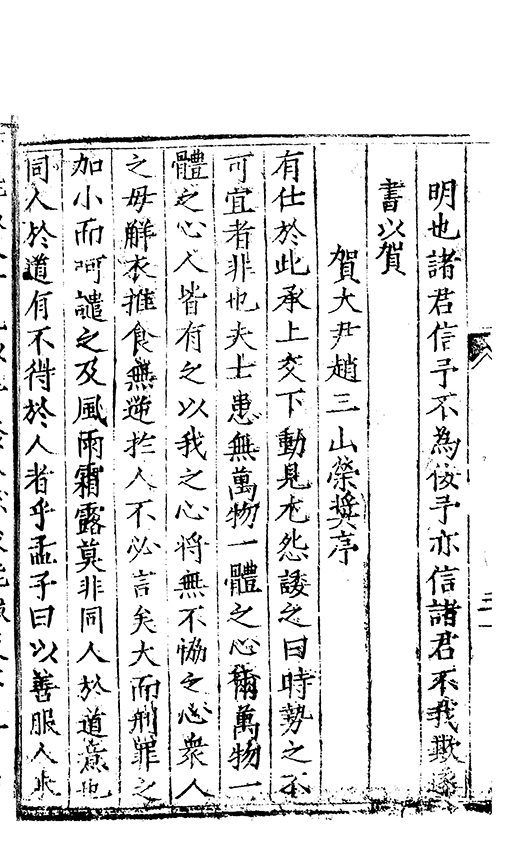 明也諸君信予不為佞予亦信諸君不我欺遂
書以賀
賀大尹趙三山榮獎序
有仕於此承上交下動見尤怨諉之曰時勢之不
可宜者非也夫士患無萬物一體之心爾萬物一
體之心人皆有之以我之心將無不恊之心衆人
之毋解衣推食無逆扵人不必言矣大而刑罪之
加小而呵譴之及風雨霜露莫非同人於道意也
同人於道有不得於人者乎孟子曰以善服人未